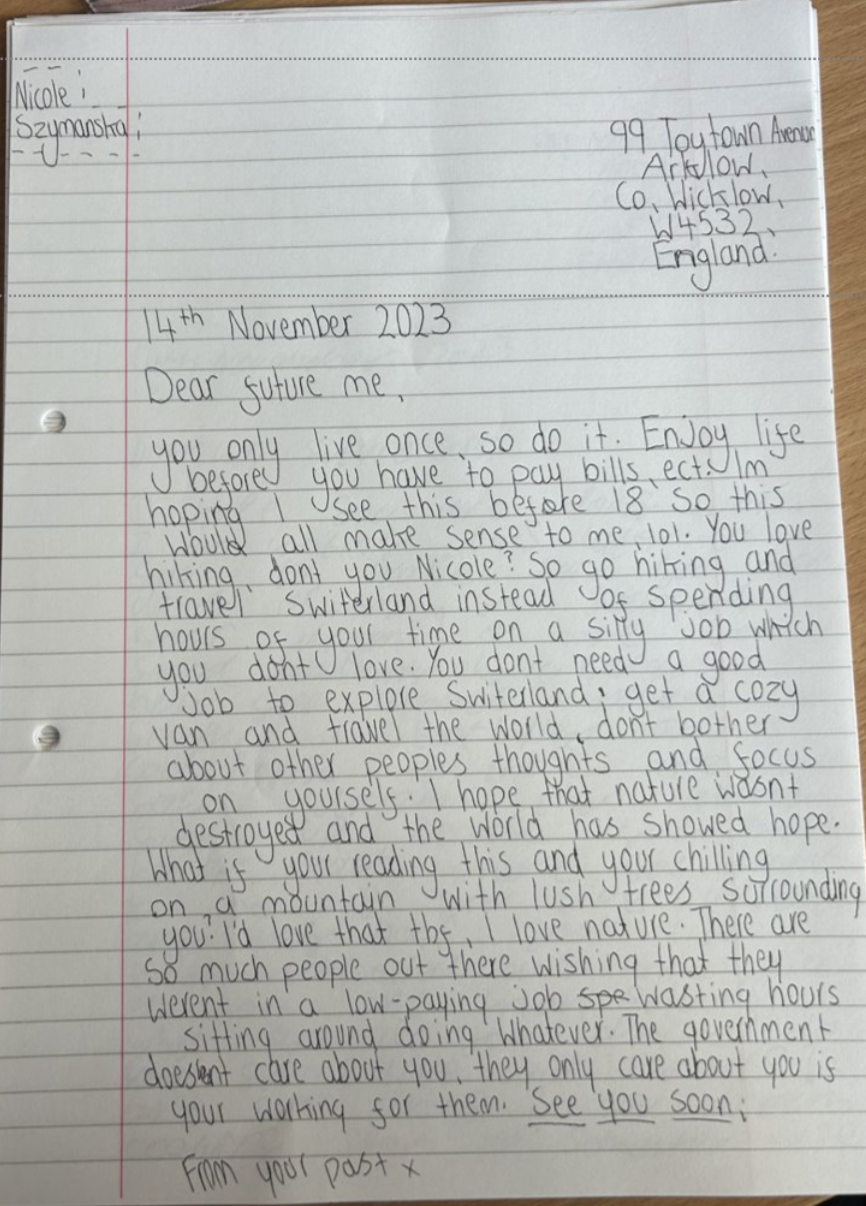 Nicole
Szymanska
99 Toytown Avenue
Arklow,
Co, Wicklow,
W4532,
England.
14th November 2023
Dear future me,
you only live once, so do it. Enjoy life
before you have to pay bills, ect. Im
hoping I see this before 18 so this
would all make sense to me, lol. You love
hiking, dont you Nicole? So go hiking and
travel Switerland instead of spending
hours of your time on a silly job which
you dont love. You dont need a good
job to explore Switerland; get a cozy
van and travel the world, don't bother
about other peoples thoughts and focus
on yourself. I hope that nature wasnt
destroyed and the world has showed hope.
What if your reading this and your chilling
on a mountain with lush trees surrounding
you? I'd love that tbf, I love nature. There are
so much people out there wishing that they
werent in a low-paying job spe wasting hours
sitting around doing whatever. The government
doesent care about you, they only care about you if
your working for them. See you soon;
From your past x